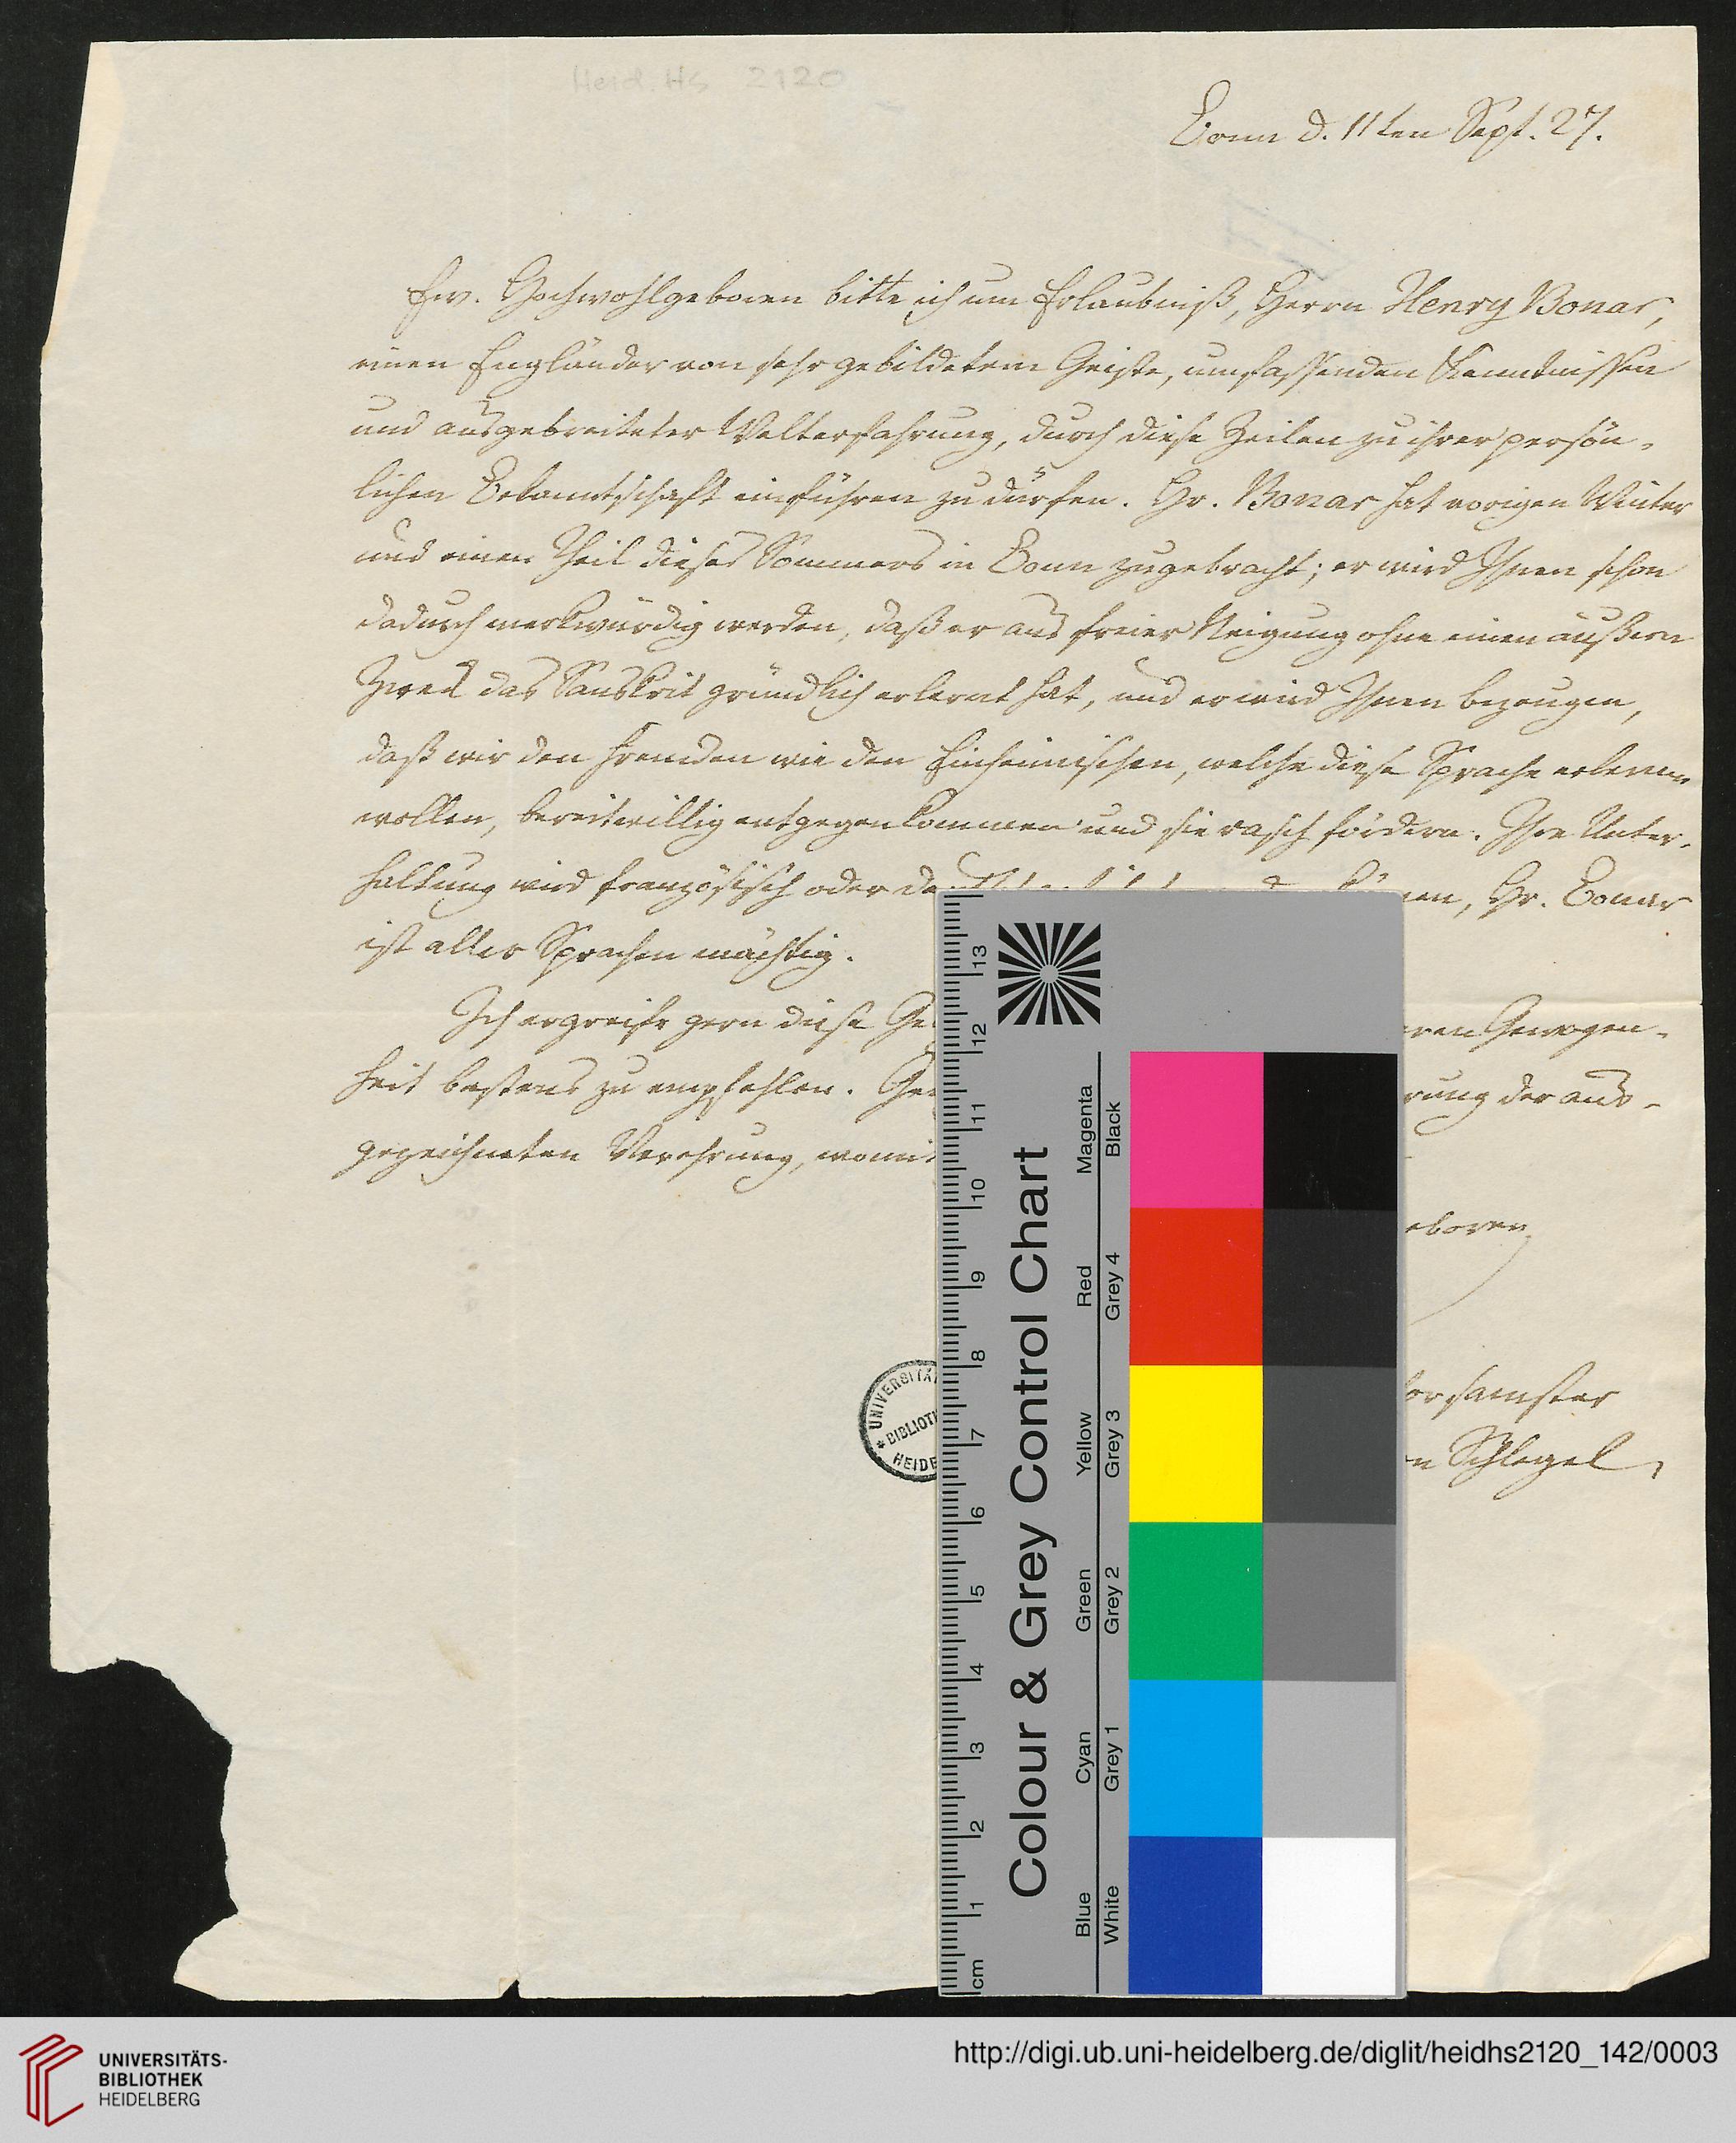 Heid. Hs 2120
Bonn d. 11ten Sept. 27.
Ew. Hochwohlgeboren bitte ich um Erlaubniß, Herrn Henry Bonar,
einen Engländer von sehr gebildetem Geiste, umfassenden Kenntnissen
und ausgebreiteter Welterfahrung, durch diese Zeilen zu ihrer persön-
lichen Bekanntschaft einführen zu dürfen. Hr. Bonar hat vorigen Winter
und einen Theil dieses Sommers in Bonn zugebracht; er wird Ihnen schon
dadurch merkwürdig werden, daß er aus freier Neigung ohne einen äußern
Zweck das Sanskrit gründlich erlernt hat, und er wird Ihnen bezeugen,
daß wir den Fremden wie den Einheimischen, welche diese Sprache erlernen
wollen, bereitwillig entgegenkommen und sie rasch fördern. Ihre Unter-
haltung wird französisch oder Hr. Bonar
ist aller Sprachen mächtig.
Ich ergreife gern diese Ge ren Gewogen-
heit bestens zu empfehlen. Ge rung der aus-
gezeichneten Verehrung, womit
eboren
orsamster
n Schlegel
UNIVERSITÄ
* BIBLIOTH
HEIDE
13
12
11
10
9
8
7
6
5
4
3
2
1
cm
Colour & Grey Control Chart
Blue Cyan Green Yellow Red Magenta
White Grey 1 Grey 2 Grey 3 Grey 4 Black
UNIVERSITÄTS-
BIBLIOTHEK
HEIDELBERG
http://digi.ub.uni-heidelberg.de/diglit/heidhs2120_142/0003